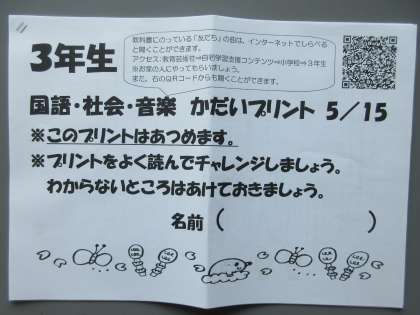 3年生
教科書にのっている「友だち」の曲は、インターネットでしらべる
と聞くことができます。
アクセス:教育芸術社⇒自宅学習支援コンテンツ⇒小学校⇒3年生
※お家の人にやってもらいましょう。
また、右のQRコードからも聞くことができます。
国語・社会・音楽 かだいプリント 5/15
※このプリントはあつめます。
※プリントをよく読んでチャレンジしましょう。
わからないところはあけておきましょう。
名前( )